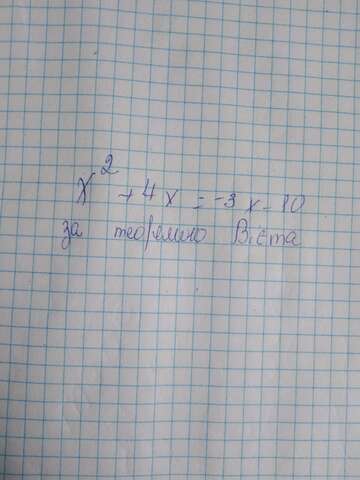 x² + 4x = -3x - 10
за теоремою Вієта